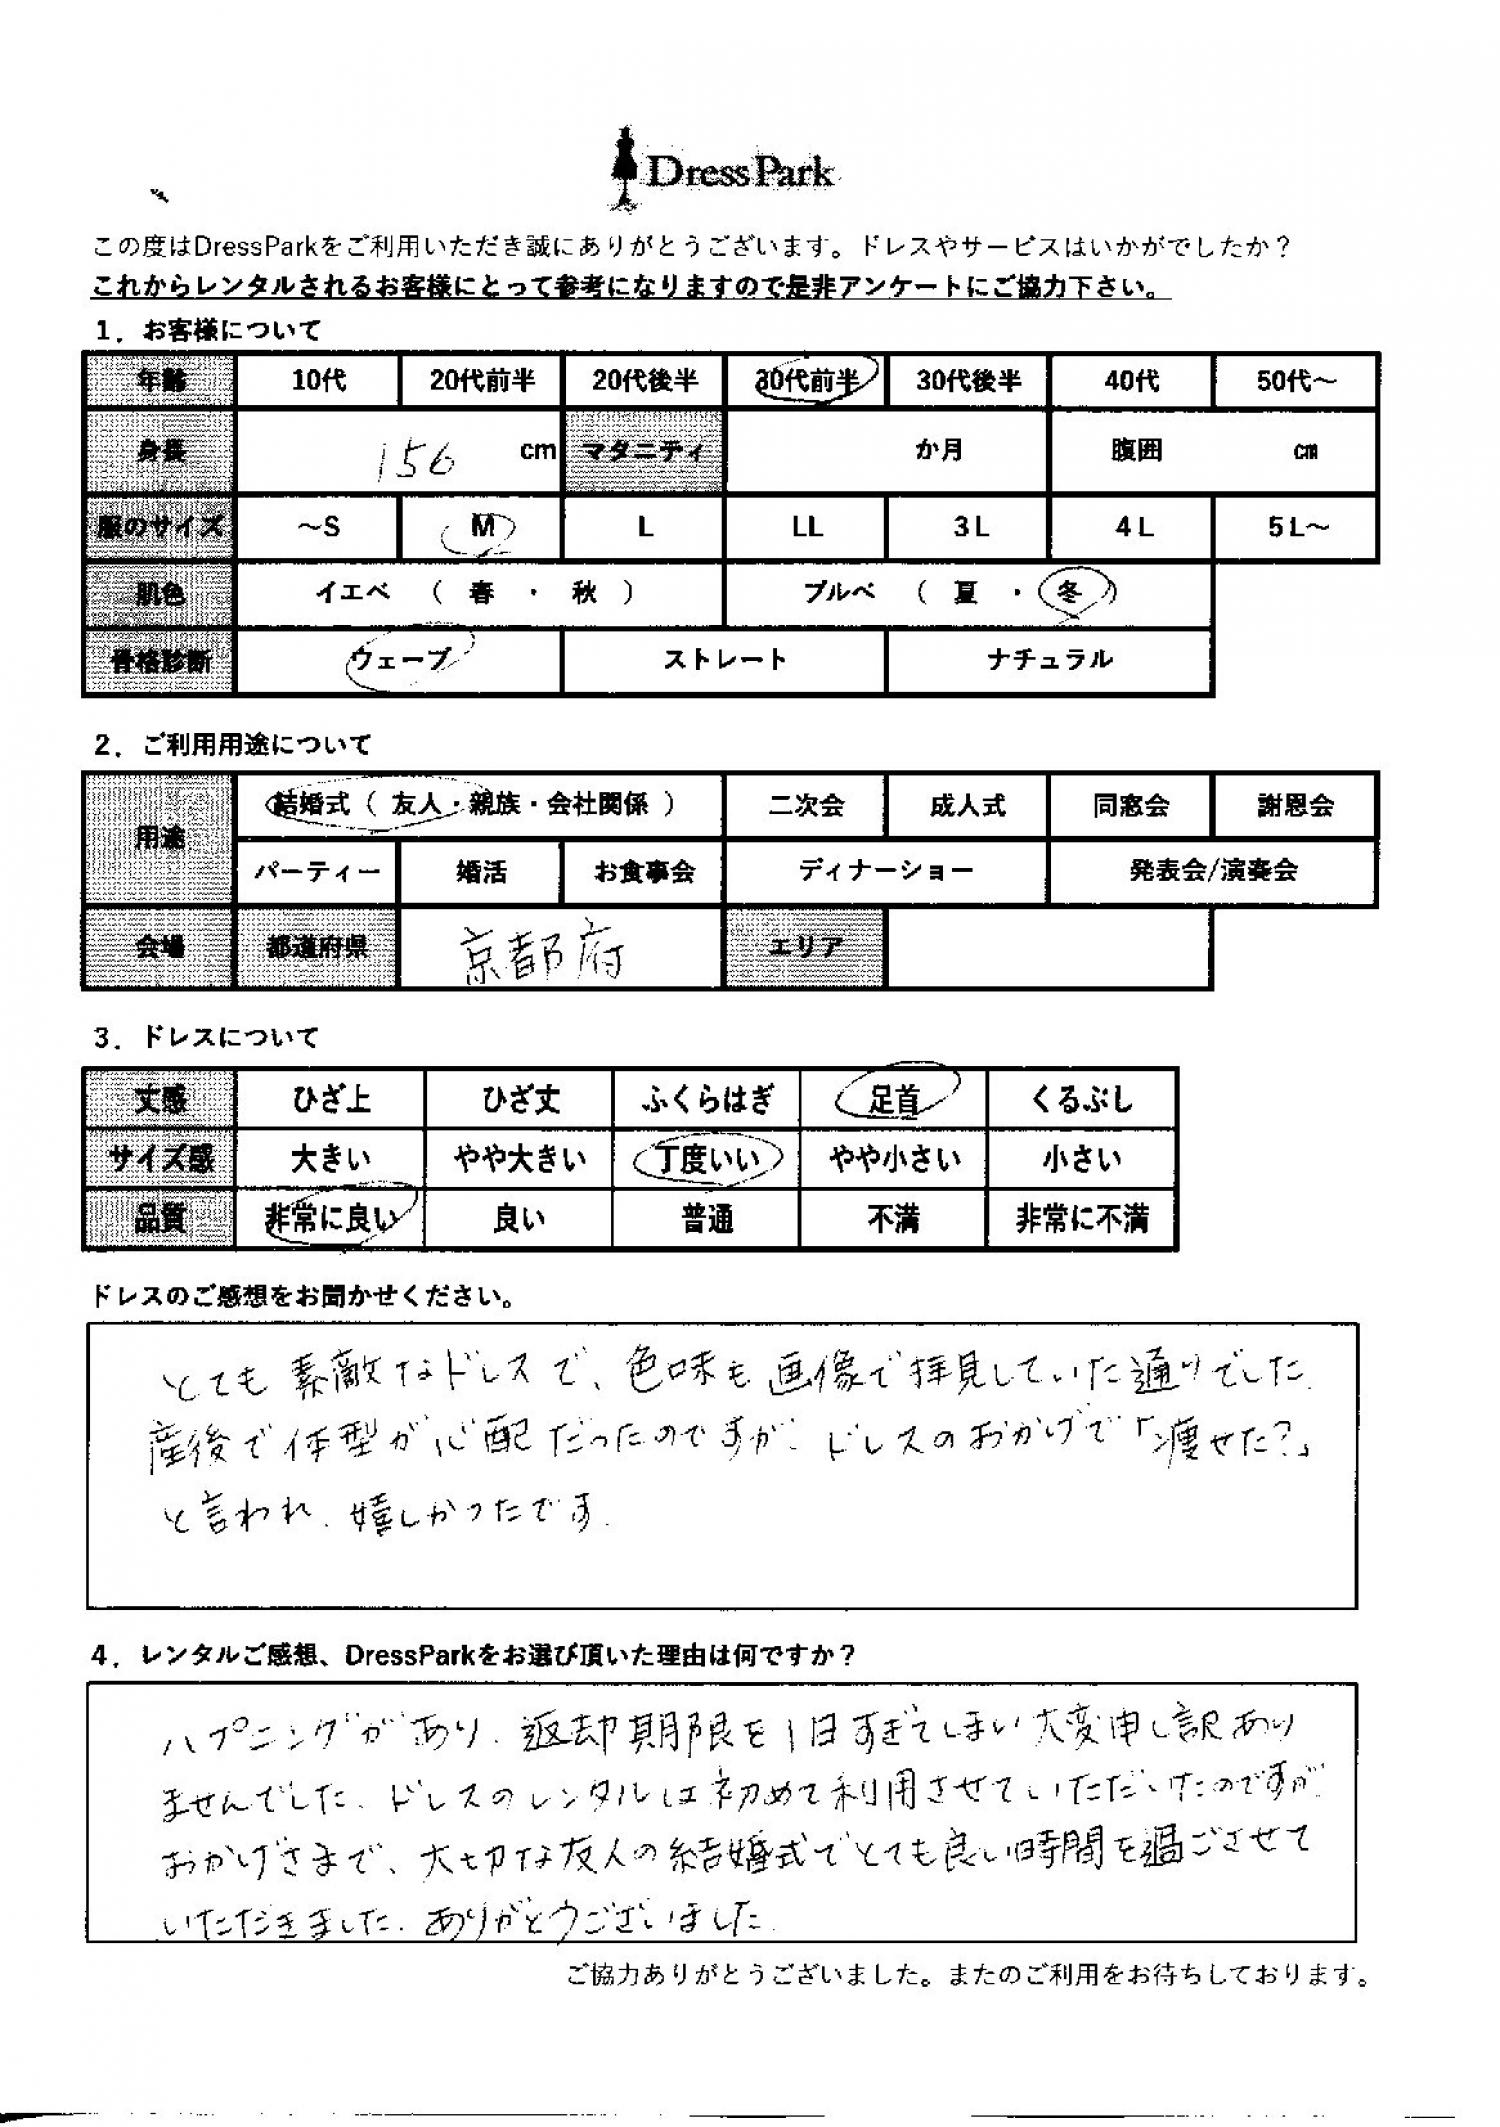 DressPark
この度はDressParkをご利用いただき誠にありがとうございます。ドレスやサービスはいかがでしたか？
これからレンタルされるお客様にとって参考になりますので是非アンケートにご協力下さい。
1．お客様について
年齢 10代 20代前半 20代後半 30代前半 30代後半 40代 50代～
身長 156 cm マタニティ か月 腹囲 cm
服のサイズ ～S M L LL 3L 4L 5L～
肌色 イエベ （ 春 ・ 秋 ） ブルベ （ 夏 ・ 冬 ）
骨格診断 ウェーブ ストレート ナチュラル
2．ご利用用途について
用途 結婚式（ 友人・親族・会社関係 ） 二次会 成人式 同窓会 謝恩会
パーティー 婚活 お食事会 ディナーショー 発表会/演奏会
会場 都道府県 京都府 エリア
3．ドレスについて
丈感 ひざ上 ひざ丈 ふくらはぎ 足首 くるぶし
サイズ感 大きい やや大きい 丁度いい やや小さい 小さい
品質 非常に良い 良い 普通 不満 非常に不満
ドレスのご感想をお聞かせください。
とても素敵なドレスで、色味も画像で拝見していた通りでした。
産後で体型が心配だったのですが、ドレスのおかげで「痩せた？」
と言われ、嬉しかったです。
4．レンタルご感想、DressParkをお選び頂いた理由は何ですか？
ハプニングがあり、返却期限を1日すぎてしまい大変申し訳あり
ませんでした。ドレスのレンタルは初めて利用させていただいたのですが、
おかげさまで、大切な友人の結婚式でとても良い時間を過ごさせて
いただきました。ありがとうございました。
ご協力ありがとうございました。またのご利用をお待ちしております。